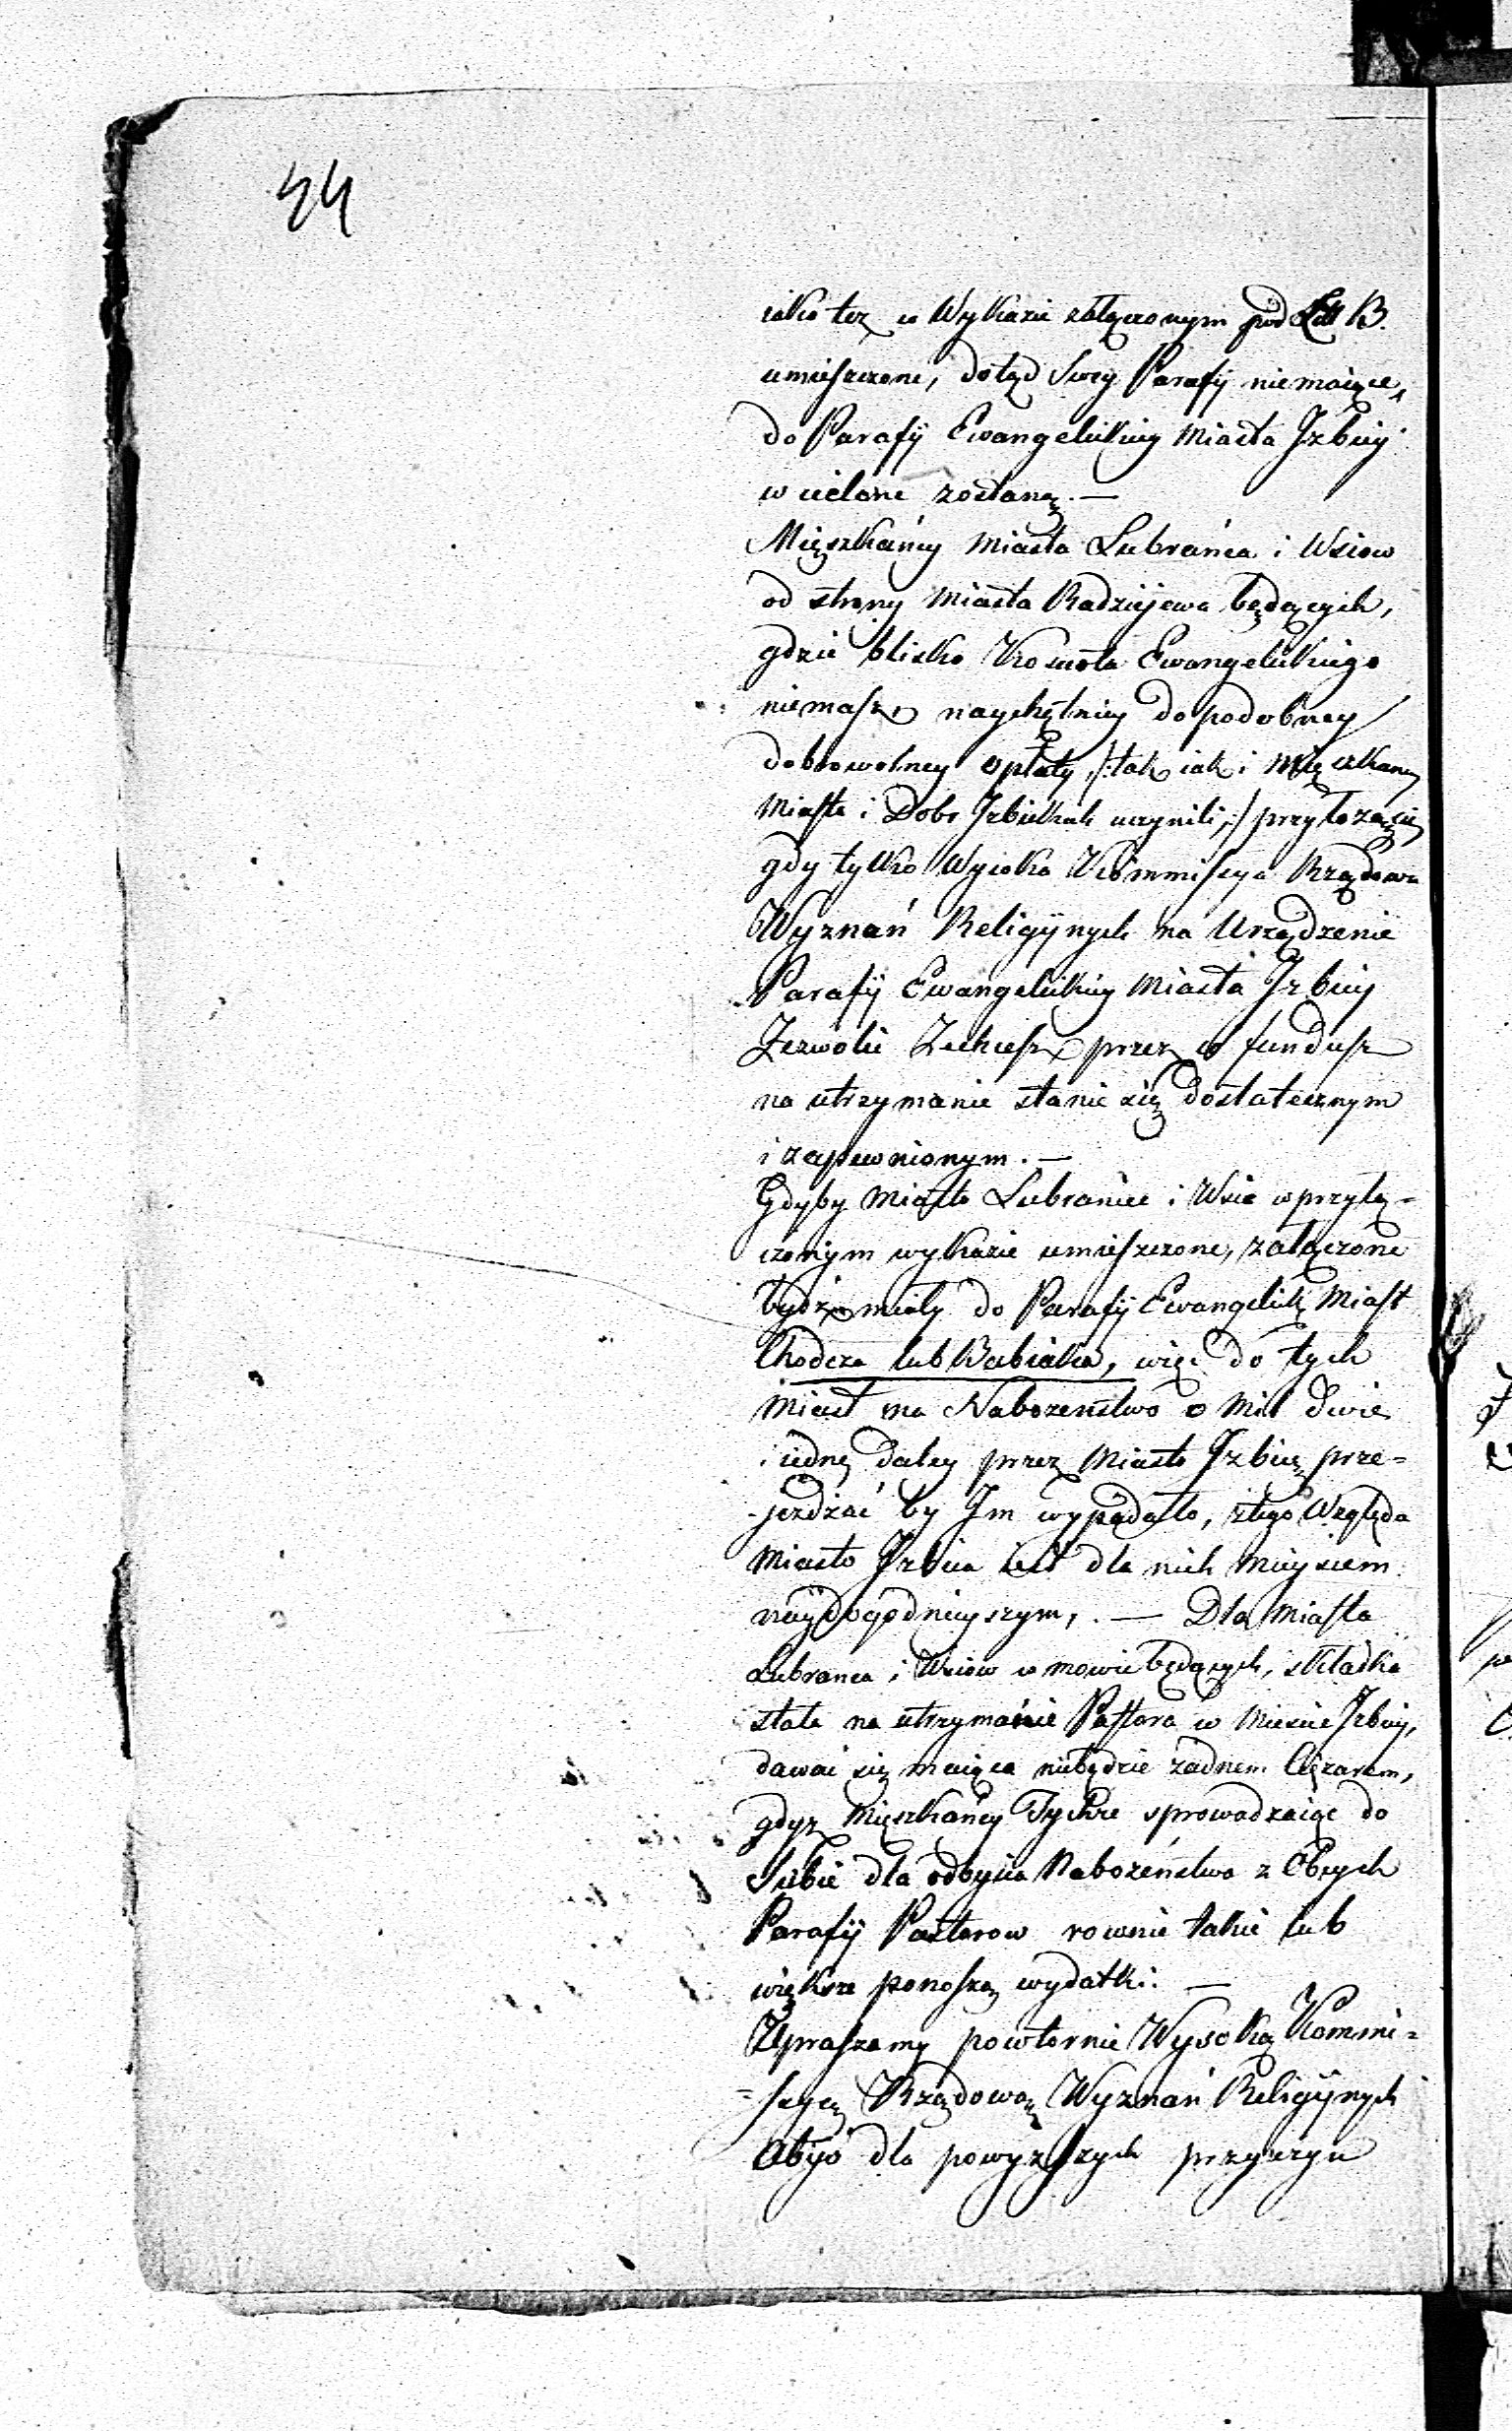 44
iako też w Wykazie załączonym pod Litt B.
umieszczone, dotąd Swey Parafij niemaiące,
do Parafij Ewangelickiey Miasta Izbicy
wcielone zostaną. —
Mięszkańcy Miasta Lubrańca i Wsiow
od strony Miasta Radziejewa będących,
gdzie blisko Kościoła Ewangelickiego
niemasz, naychętniey do podobney
dobrowolney opłaty /: tak iak i Mięszkańcy
Miasta i Dobr Izbickich uczynili, :/ przyłożą się,
gdy tylko Wysoka Kommissya Rządowa
Wyznań Religijnych na Urządzenie
Parafij Ewangelickiey Miasta Izbicy
Zezwolić Zechcesz, przez co fundusz
na utrzymanie stanie się dostatecznym
i zapewnionym. —
Gdyby Miasto Lubraniec i Wsie w przyłą-
czonym wykazie umieszczone, załączone
bydź miały do Parafij Ewangelick: Miast
Chodcza lub Babiaka, więc do tych
Miast na Nabożeństwo o Mil dwie
i iednę daley przez Miasto Izbicę prze-
-jezdzać by Im wypadało, z tego Względu
Miasto Izbica iest dla nich Mieyscem
naydogodnieyszym, . — Dla Miasta
Lubranca i Wsiow w mowie będących, składka
stała na utrzymanie Pastora w Mieście Izbicy,
dawać się maiąca niebędzie żadnem Ciężarem,
gdyż Mięszkańcy Tychże sprowadzaiąc do
Siebie dla odbycia Nabożeństwa z Obcych
Parafij Pastorow rownie takie lub
większe ponoszą wydatki. —
Upraszamy powtornie Wysoką Kommi=
=ssyą Rządową Wyznań Religijnych
Abyś dla powyższych przyczyn